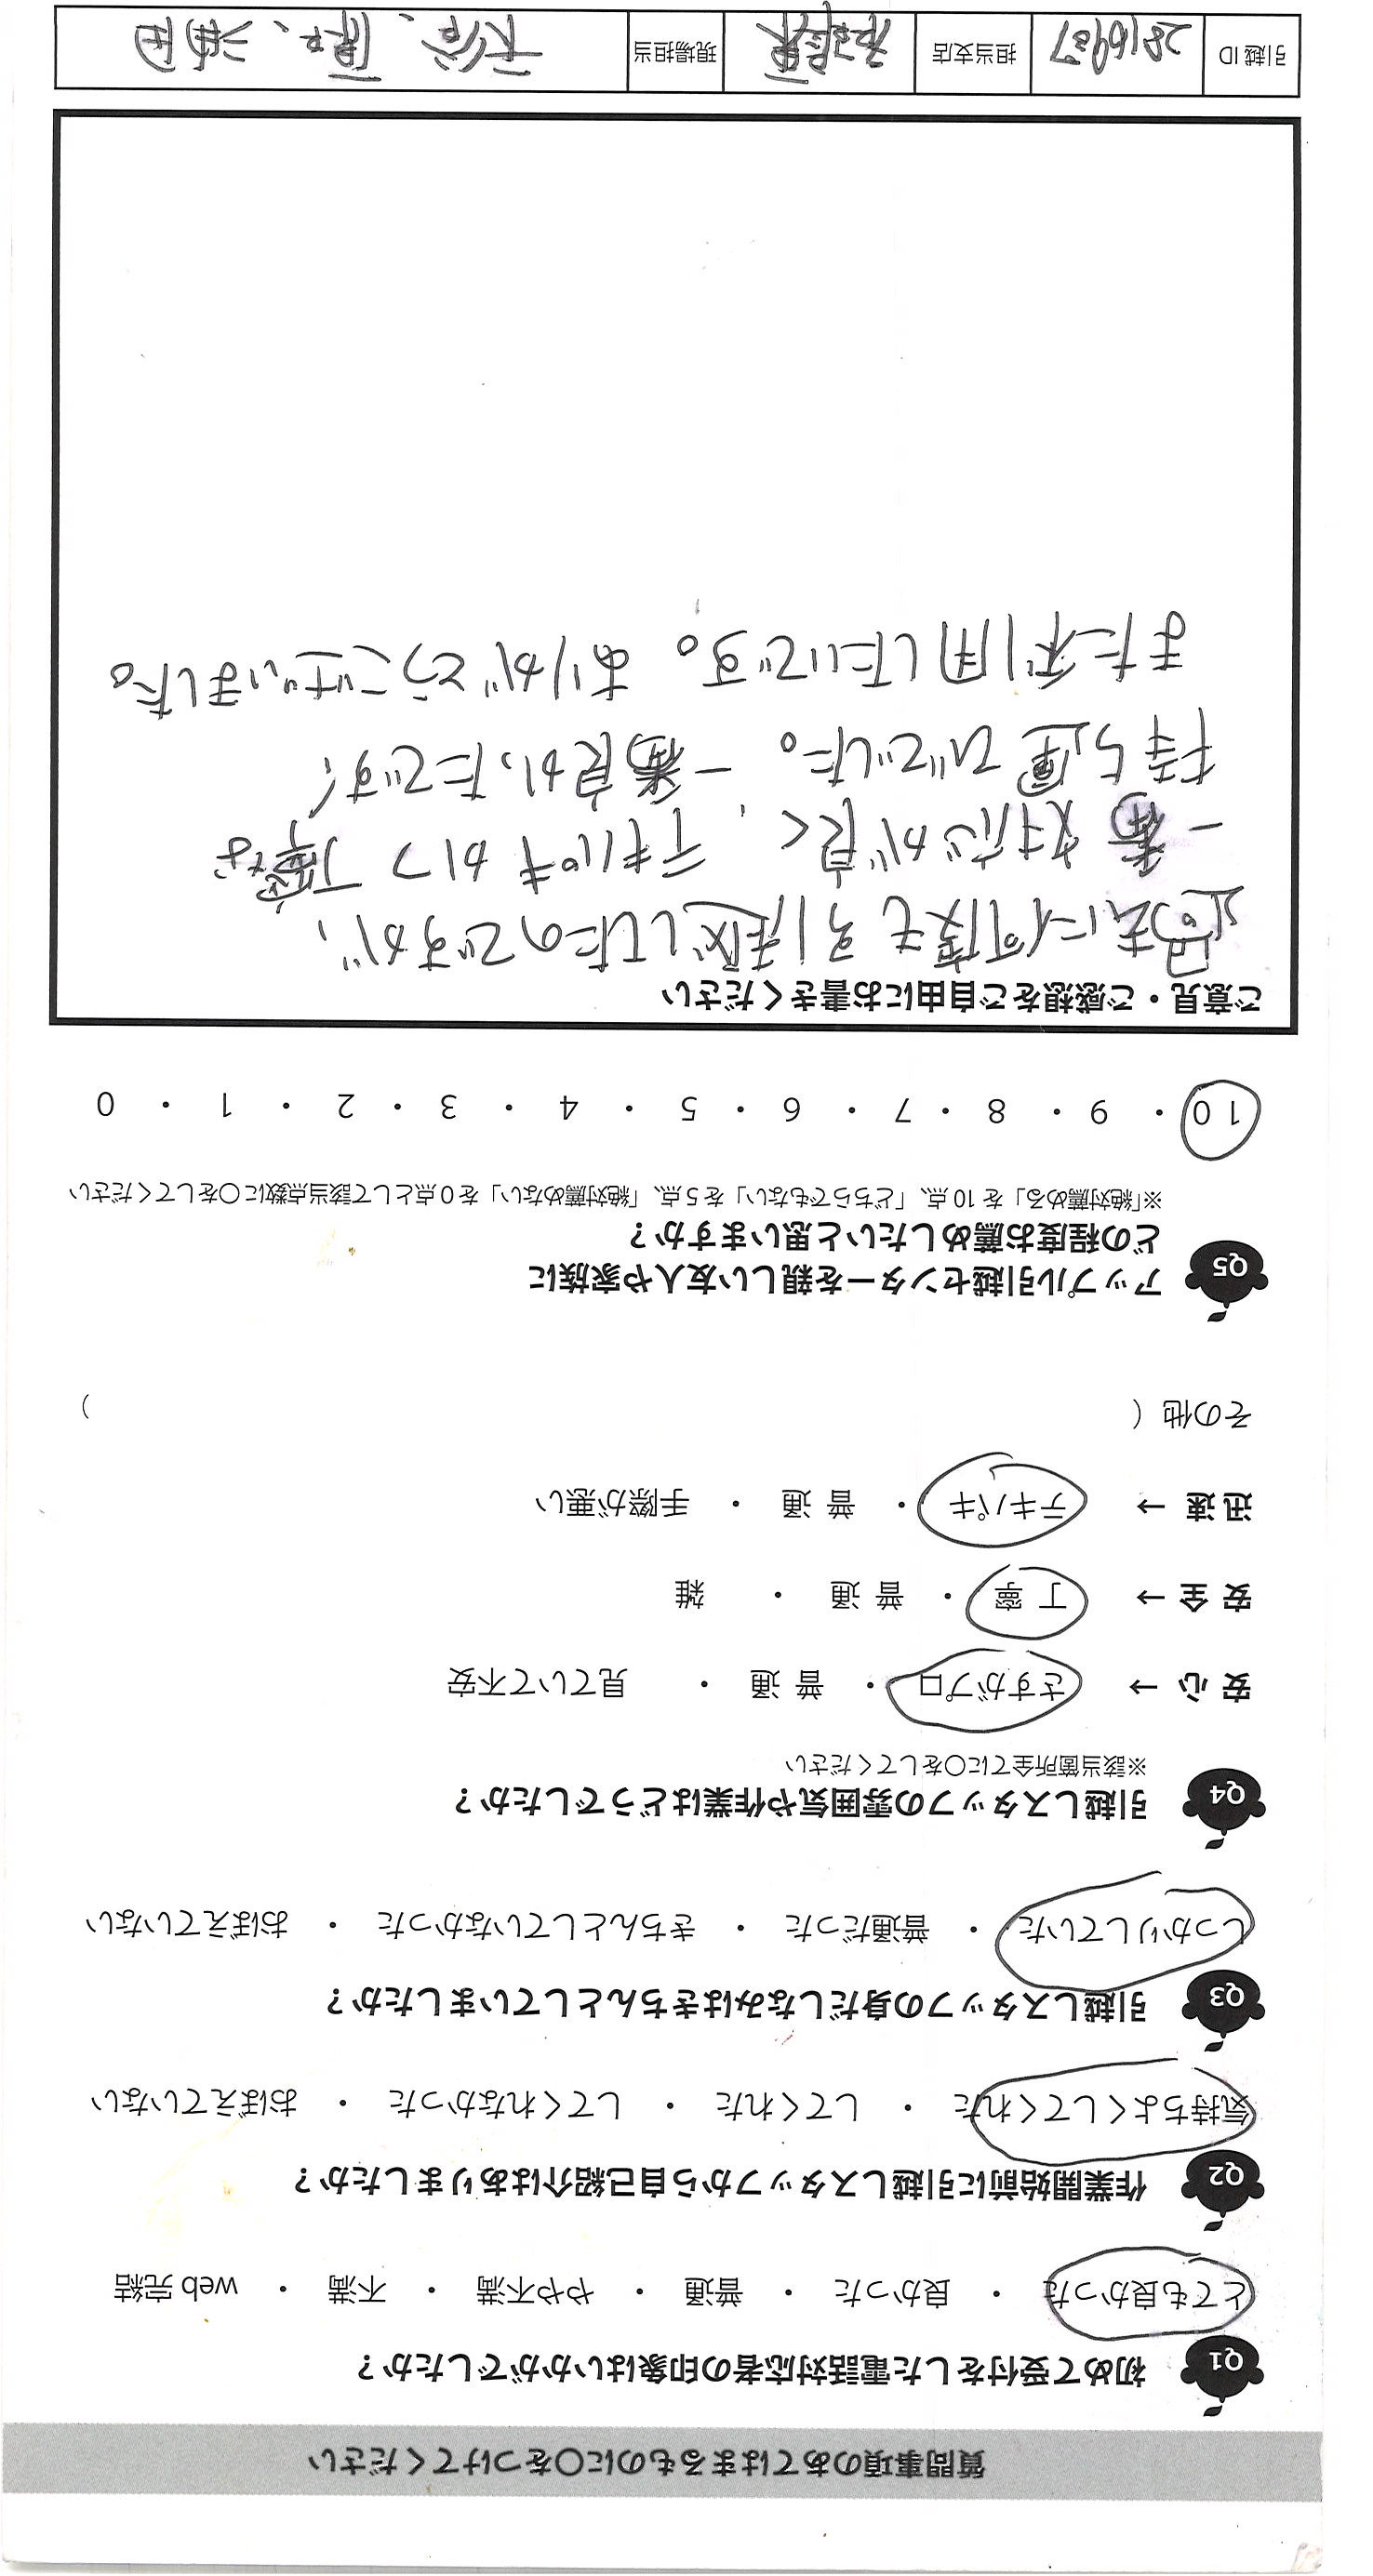 質問事項のあてはまるものに〇をつけてください
Q1 初めて受付をした電話対応者の印象はいかがでしたか？
とても良かった ・ 良かった ・ 普通 ・ やや不満 ・ 不満 ・ web 完結
Q2 作業開始前に引越しスタッフから自己紹介はありましたか？
気持ちよくしてくれた ・ してくれた ・ してくれなかった ・ おぼえていない
Q3 引越しスタッフの身だしなみはきちんとしていましたか？
しっかりしていた ・ 普通だった ・ きちんとしていなかった ・ おぼえていない
Q4 引越しスタッフの雰囲気や作業はどうでしたか？
※該当箇所全てに〇をしてください
安 心 → さすがプロ ・ 普 通 ・ 見ていて不安
安 全 → 丁 寧 ・ 普 通 ・ 雑
迅 速 → テキパキ ・ 普 通 ・ 手際が悪い
その他（ ）
Q5 アップル引越センターを親しい友人や家族に
どの程度お薦めしたいと思いますか？
※「絶対薦める」を 10 点、「どちらでもない」を 5 点、「絶対薦めない」を 0 点として該当点数に〇をしてください
10 ・ 9 ・ 8 ・ 7 ・ 6 ・ 5 ・ 4 ・ 3 ・ 2 ・ 1 ・ 0
ご意見・ご感想をご自由にお書きください
過去に何度も引越してたのですが、
一番対応が良く、テキパキかつ丁寧な
持ち運びでした。一番良かったです！
また利用したいです。ありがとうございました。
引越 ID 担当支店 現場担当